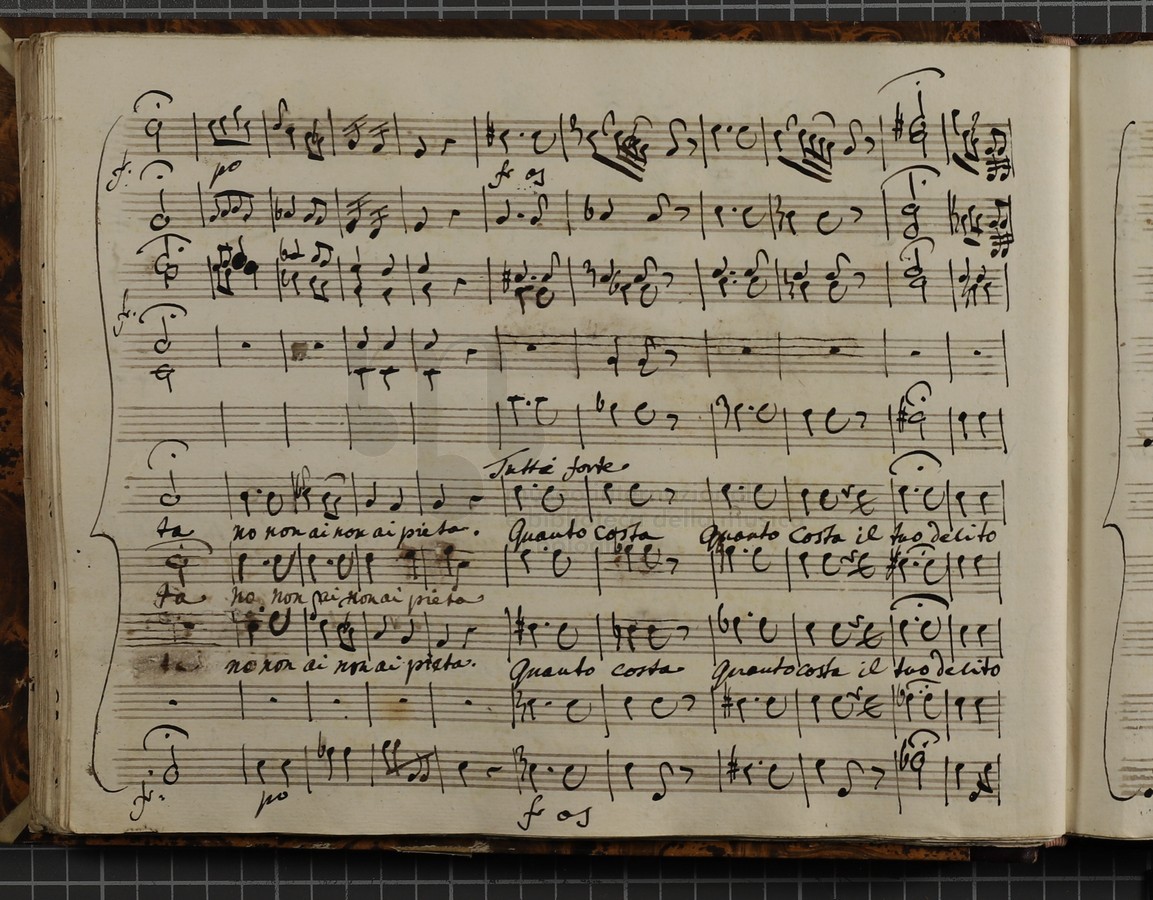 po
f:
fr as
fr.
Tutti forte.
ta no non ai non ai pieta. Quanto costa Quanto costa il tuo delito
ta no non ai non ai pieta
ta no non ai non ai pieta. Quanto costa Quanto costa il tuo delito
fr: po
fr as